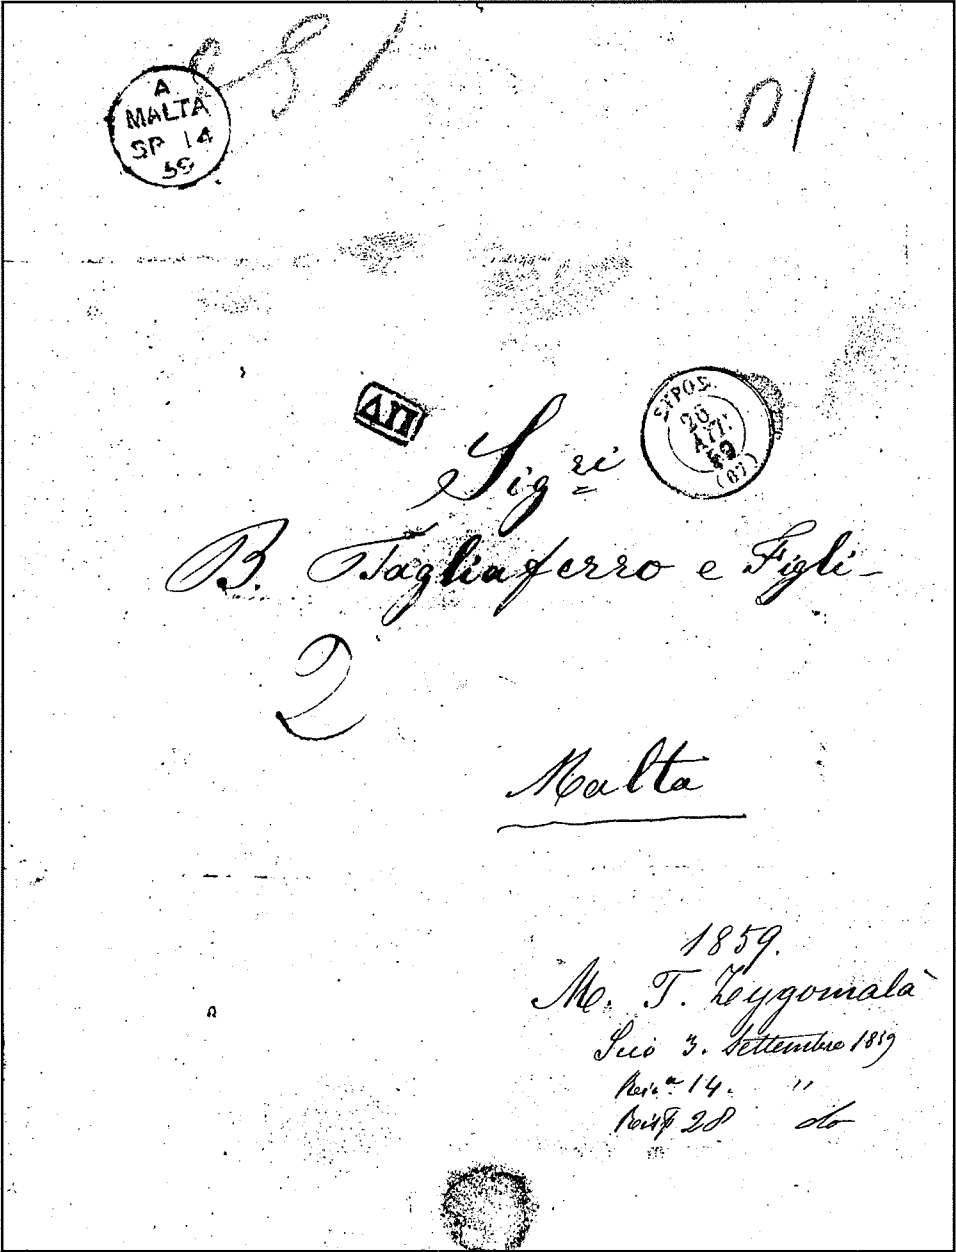 A
MALTA
SP 14
59
ΔΠ
ΣΥΡΟΣ.
26
ΑΥΓ.
59
(67)
Sigri
B. Tagliaferro e Figli -
2
Malta
1859.
M. T. Zygomalà
Scio 3. Settembre 1859
14. "
28 do